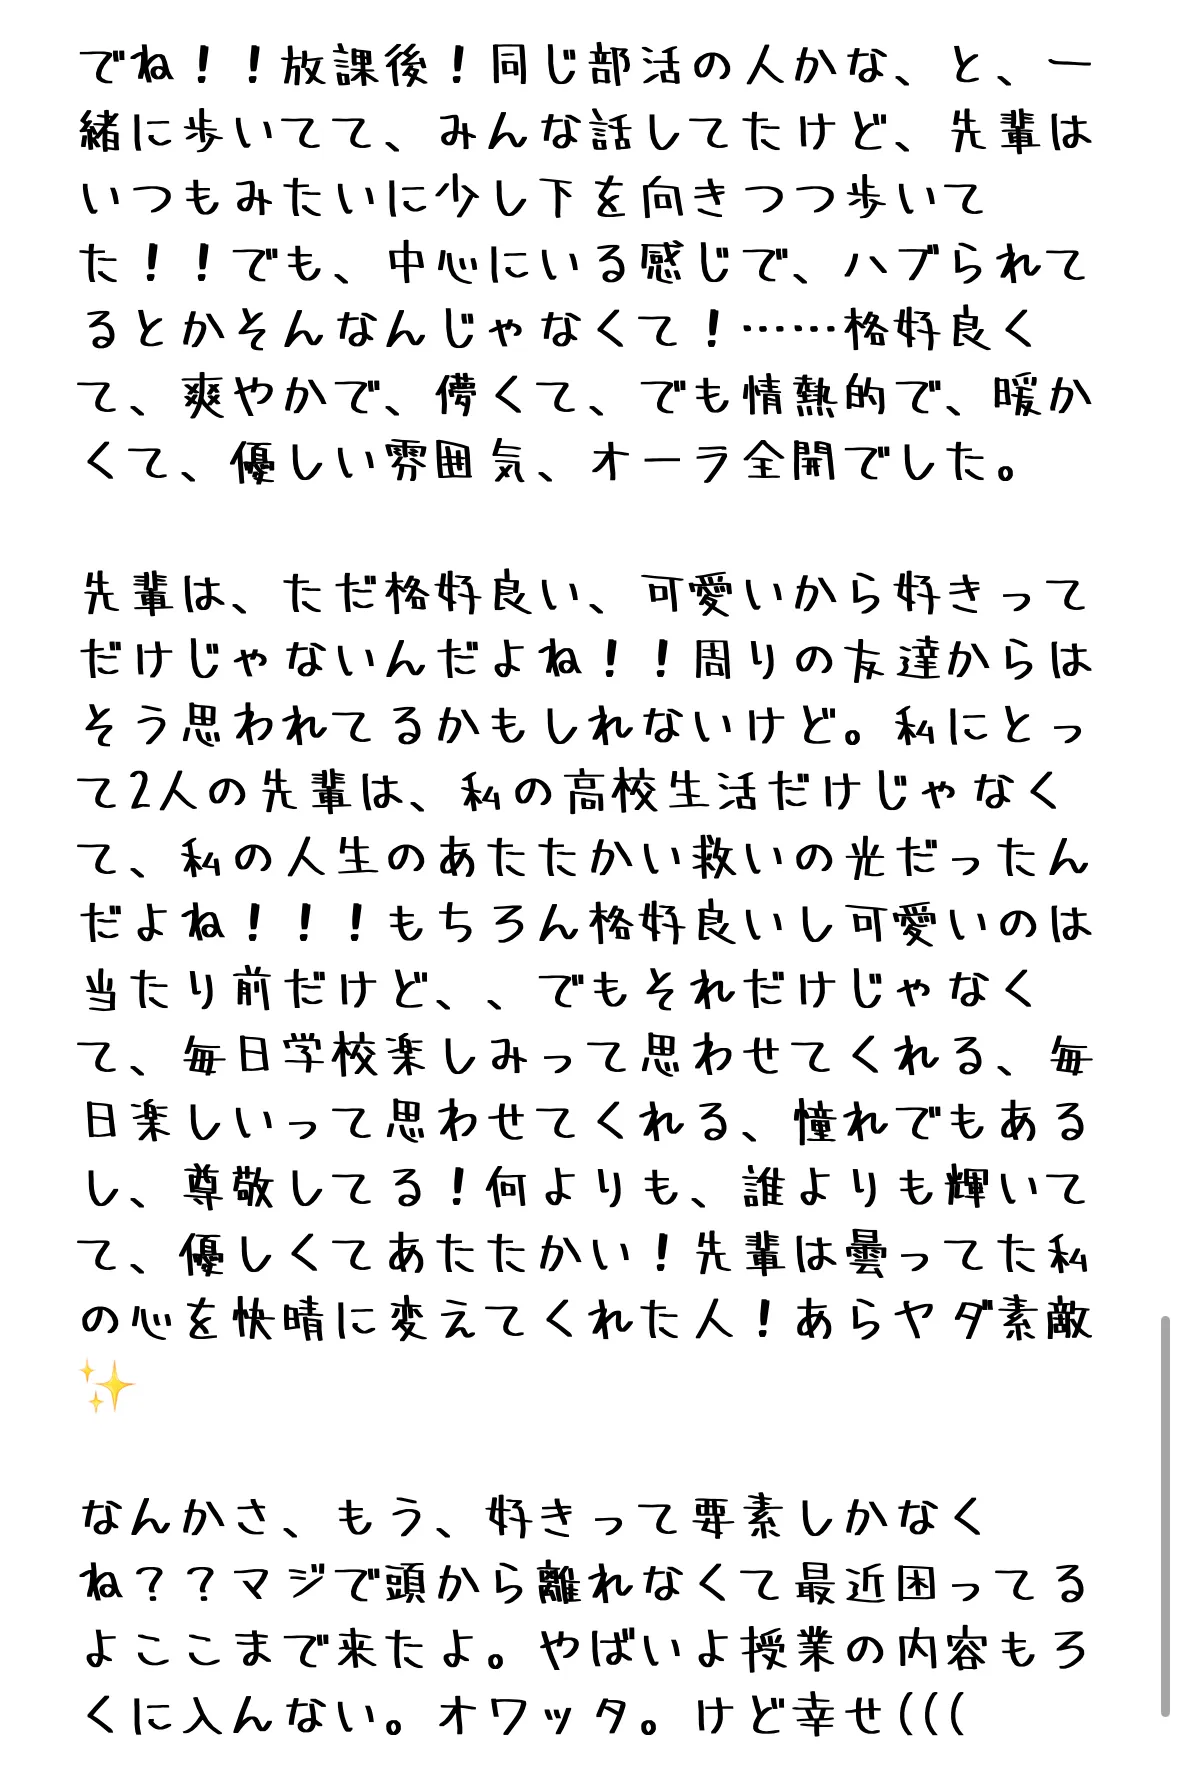 でね！！放課後！同じ部活の人かな、と、一
緒に歩いてて、みんな話してたけど、先輩は
いつもみたいに少し下を向きつつ歩いて
た！！でも、中心にいる感じで、ハブられて
るとかそんなんじゃなくて！……格好良く
て、爽やかで、儚くて、でも情熱的で、暖か
くて、優しい雰囲気、オーラ全開でした。
先輩は、ただ格好良い、可愛いから好きって
だけじゃないんだよね！！周りの友達からは
そう思われてるかもしれないけど。私にとっ
て2人の先輩は、私の高校生活だけじゃなく
て、私の人生のあたたかい救いの光だったん
だよね！！！もちろん格好良いし可愛いのは
当たり前だけど、、でもそれだけじゃなく
て、毎日学校楽しみって思わせてくれる、毎
日楽しいって思わせてくれる、憧れでもある
し、尊敬してる！何よりも、誰よりも輝いて
て、優しくてあたたかい！先輩は曇ってた私
の心を快晴に変えてくれた人！あらヤダ素敵
✨
なんかさ、もう、好きって要素しかなく
ね？？マジで頭から離れなくて最近困ってる
よここまで来たよ。やばいよ授業の内容もろ
くに入んない。オワッタ。けど幸せ(((